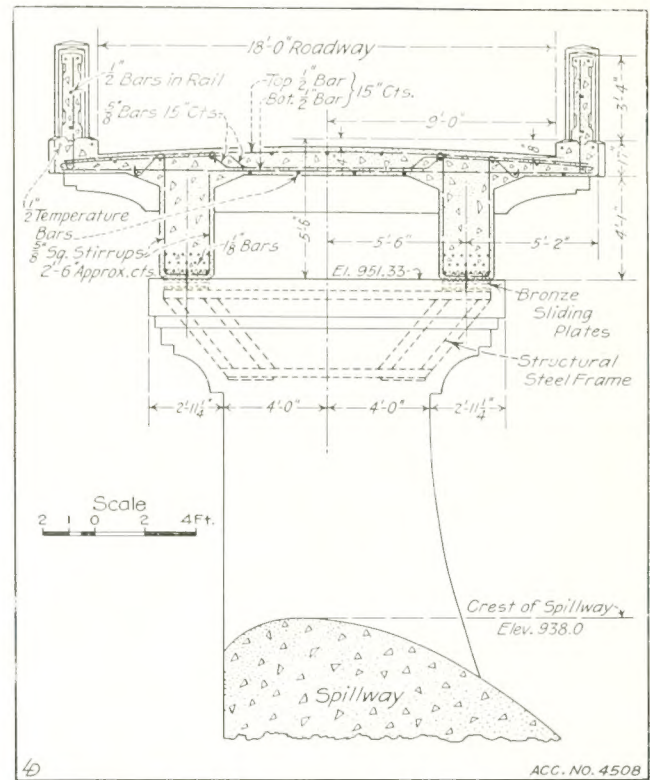 18'-0" Roadway
1/2" Bars in Rail
Top 1/2" Bar
Bot. 1/2" Bar
15" Cts.
5/8" Bars 15" Cts.
9'-0"
8"
3'-4"
17"
4'-1"
1/2" Temperature
Bars
5/8" Sq. Stirrups
2'-6" Approx. cts.
1 1/8" Bars
5'-6"
5'-6"
5'-2"
El. 951.33
Bronze
Sliding
Plates
Structural
Steel Frame
2'-11 1/4"
4'-0"
4'-0"
2'-11 1/4"
Scale
2 1 0 2 4 Ft.
Crest of Spillway
Elev. 938.0
Spillway
ACC. NO. 4508